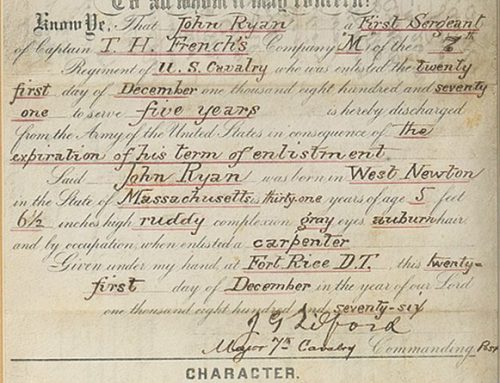 To all whom it may concern:
Know Ye, That John Ryan a First Sergeant
of Captain T. H. French's Company "M" of the "7th"
Regiment of U. S. Cavalry who was enlisted the twenty
first day of December one thousand eight hundred and seventy
one to serve five years is hereby discharged
from the Army of the United States in consequence of the
expiration of his term of enlistment.
Said John Ryan was born in West Newton
in the State of Massachusetts, thirty-one years of age 5 feet
6½ inches high ruddy complexion gray eyes auburn hair
and by occupation, when enlisted a carpenter
Given under my hand, at Fort Rice D.T. this twenty-
first day of December in the year of our Lord
one thousand eight hundred and seventy-six
Major 7th Cavalry Commanding Post
CHARACTER.